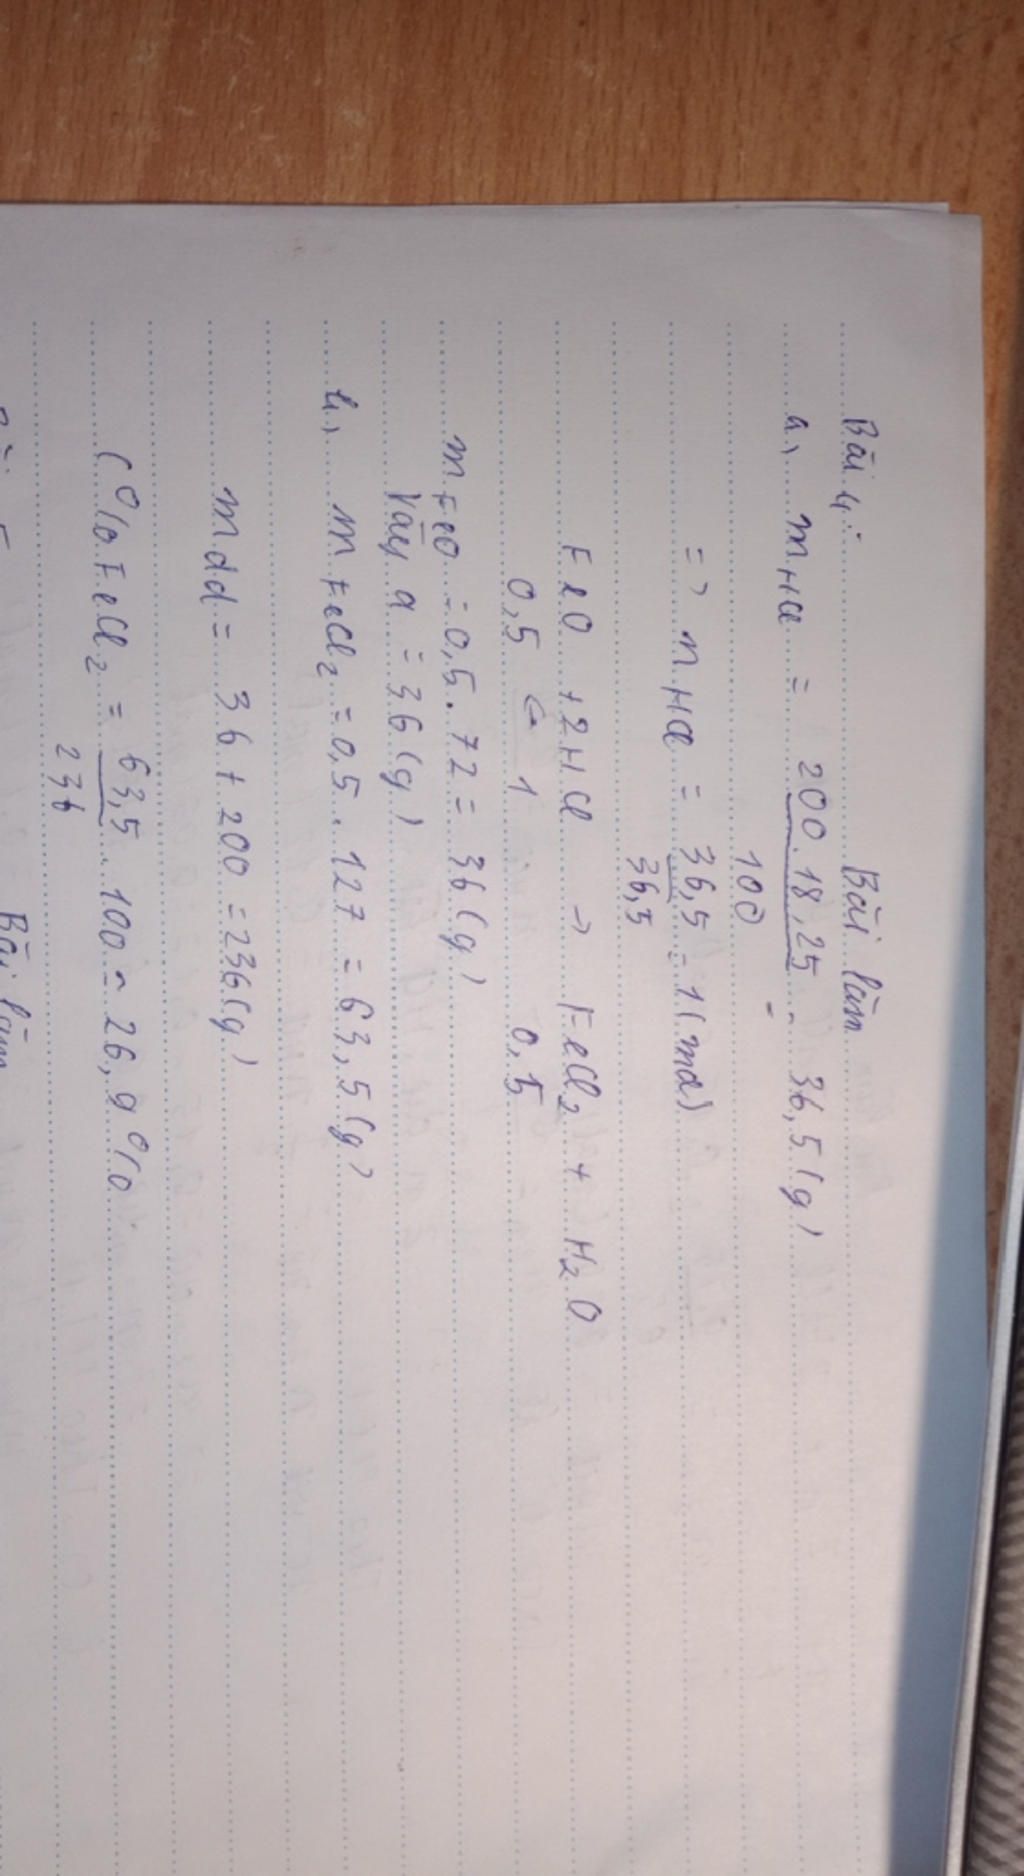 Bài 4:
Bài làm
a, mHCl = 200.18,25 = 36,5(g)
100
=> nHCl = 36,5 = 1(mol)
36,5
FeO + 2HCl -> FeCl2 + H2O
0,5 <- 1 0,5
mFeO = 0,5.72 = 36(g)
Vậy a = 36(g)
b, mFeCl2 = 0,5.127 = 63,5(g)
mdd = 36 + 200 = 236(g)
C%FeCl2 = 63,5 . 100 = 26,9%
236
Bài làm